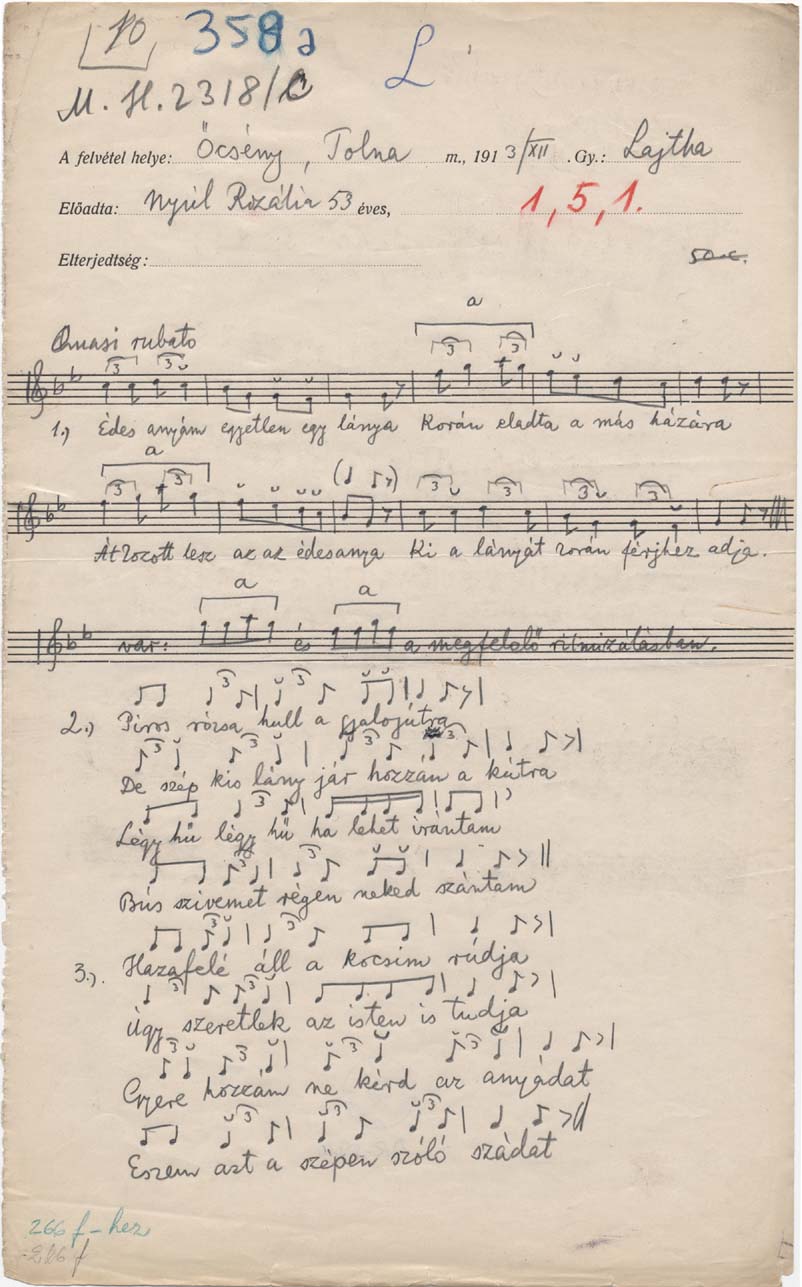 10 358a L
M. H. 2318/C
A felvétel helye: Őcsény, Tolna m., 1913/XII . Gy.: Lajtha
Előadta: Nyúl Rozália 53 éves, 1, 5, 1.
Elterjedtség:
a
Quasi rubato
3 3 3 3
1.) Édes anyám egyetlen egy lánya Korán eladta a más házára
a
3 3 3 3 3 3
Átkozott lesz az az édesanya Ki a lányát korán férjhez adja.
a a
var: és a megfelelő ritmizálásban.
3 3
2.) Piros rózsa hull a gyalogútra
3 3 3 3
De szép kis lány jár hozzám a kútra
3
Légy hű légy hű ha lehet irántam
3 3
Bús szivemet régen neked szántam
3 3
3.). Hazafelé áll a kocsim rúdja
3 3
Úgy szeretlek az isten is tudja
3 3 3 3
Gyere hozzám ne kérd az anyádat
3 3 3
Eszem azt a szépen szóló szádat
266 f - hez